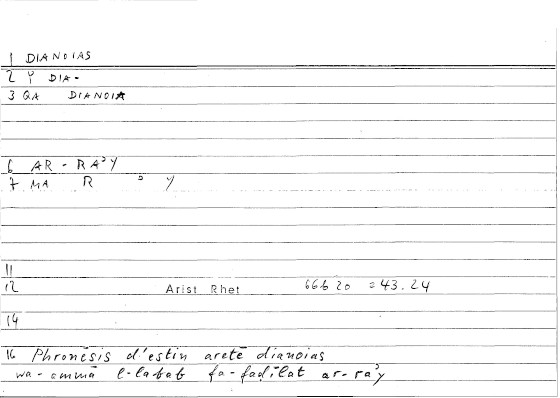 1 DIANOIAS
2 Y DIA-
3 QA DIANOIA
6 AR-RAʾY
7 MA R ʾ Y
11
12 Arist Rhet 66b20 =43.24
14
16 Phronēsis d'estin aretē dianoias
wa-ammā l-labab fa-faḍīlat ar-raʾy